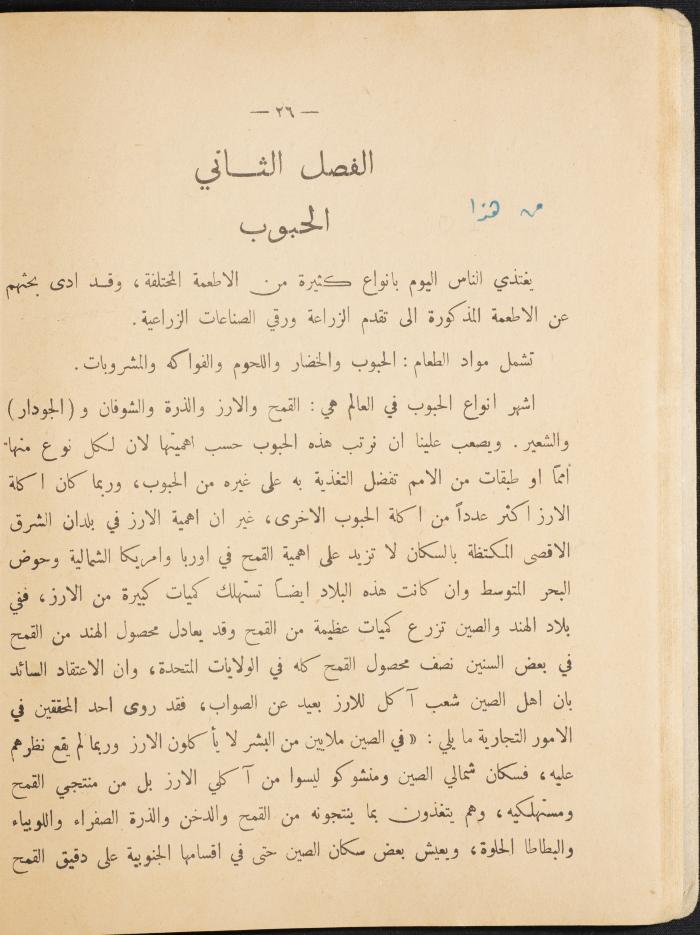 — ٢٦ —
الفصل الثـــاني
من هذا
الحبوب
يغتذي الناس اليوم بانواع كثيرة من الاطعمة المختلفة، وقـد ادى بحثهم
عن الاطعمة المذكورة الى تقدم الزراعة ورقي الصناعات الزراعية.
تشمل مواد الطعام : الحبوب والخضار واللحوم والفواكه والمشروبات.
اشهر انواع الحبوب في العالم هي : القمح والارز والذرة والشوفان و (الجودار)
والشعير. ويصعب علينا ان نرتب هذه الحبوب حسب اهميتها لان لكل نوع منها
امماً او طبقات من الامم تفضل التغذية به على غيره من الحبوب، وربما كان اكلة
الارز اكثر عدداً من اكلة الحبوب الاخرى، غير ان اهمية الارز في بلدان الشرق
الاقصى المكتظة بالسكان لا تزيد على اهمية القمح في اوربا وامريكا الشمالية وحوض
البحر المتوسط وان كانت هذه البلاد ايضـاً تستهلك كميات كبيرة من الارز، ففي
بلاد الهند والصين تزرع كميات عظيمة من القمح وقد يعادل محصول الهند من القمح
في بعض السنين نصف محصول القمح كله في الولايات المتحدة، وان الاعتقاد السائد
بان اهل الصين شعب آكل للارز بعيد عن الصواب، فقد روى احد المحققين في
الامور التجارية ما يلي : « في الصين ملايين من البشر لا يأكلون الارز وربما لم يقع نظرهم
عليه، فسكان شمالي الصين ومنشوكو ليسوا من آكلي الارز بل من منتجي القمح
ومستهلكيه، وهم يتغذون بما ينتجونه من القمح والدخن والذرة الصفراء واللوبياء
والبطاطا الحلوة، ويعيش بعض سكان الصين حتى في اقسامها الجنوبية على دقيق القمح